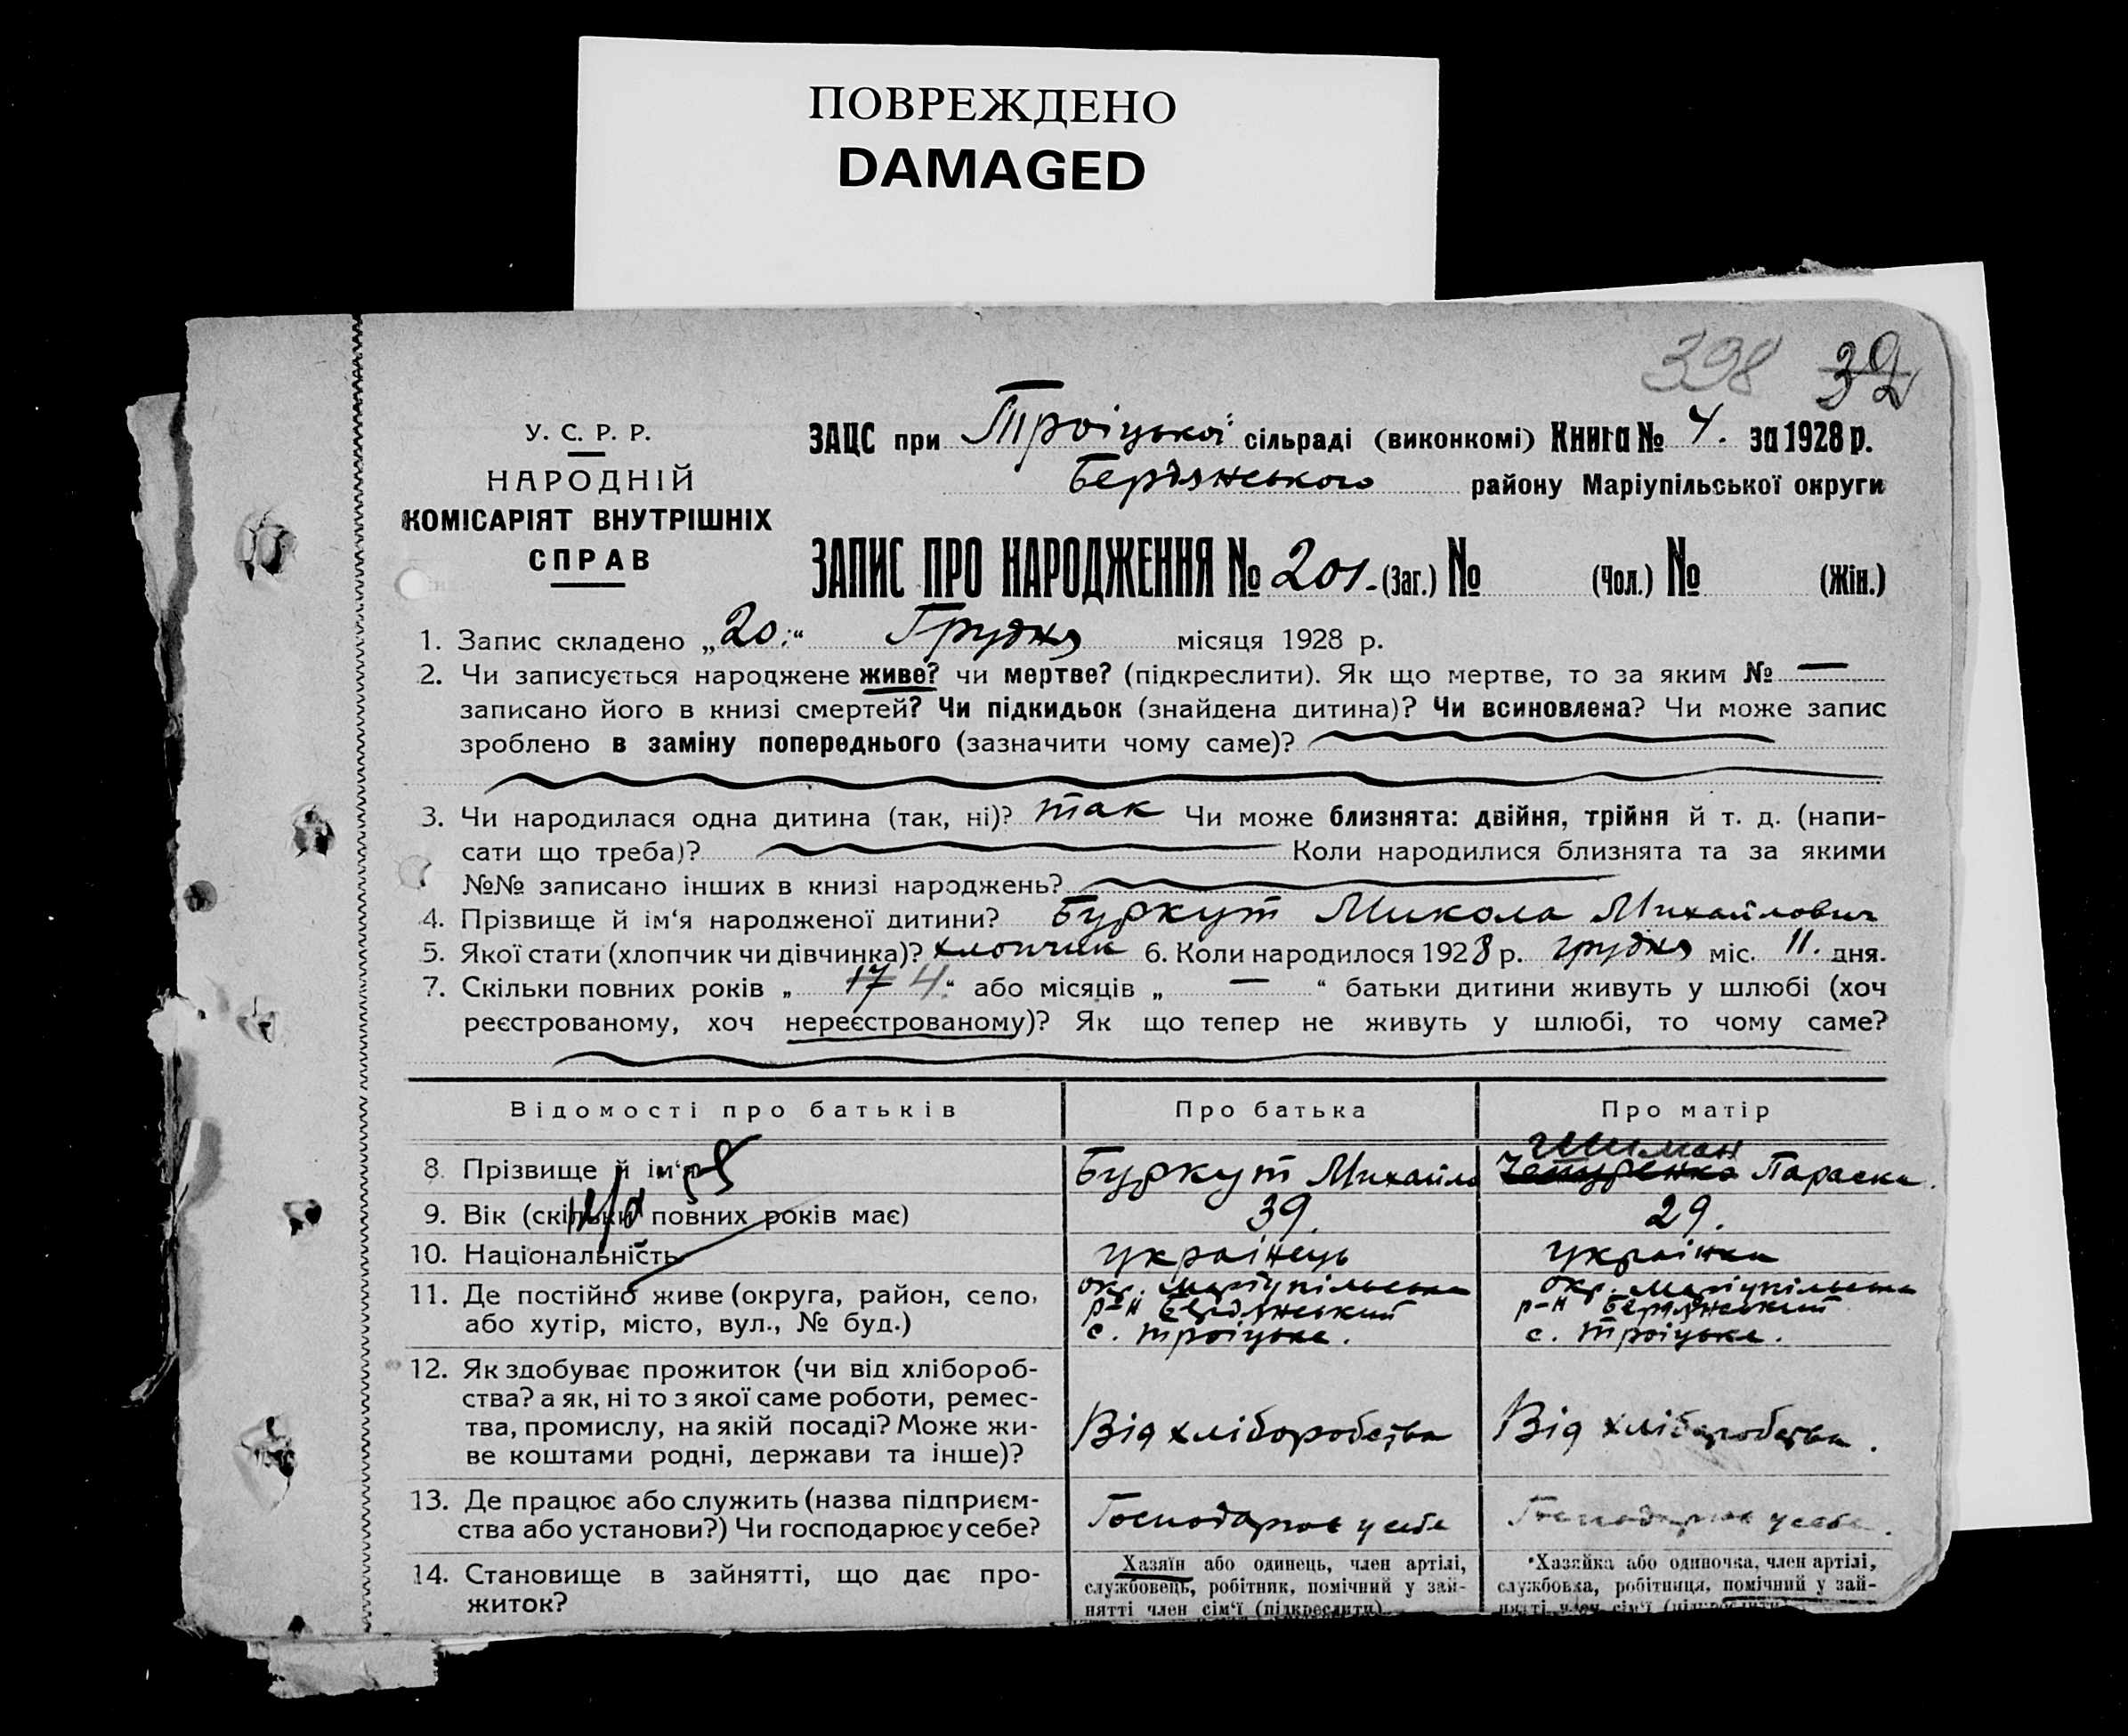 ПОВРЕЖДЕНО
DAMAGED
398 32
У. С. Р. Р.
НАРОДНІЙ
КОМІСАРІЯТ ВНУТРІШНІХ
СПРАВ
ЗАЦС при Троіцькоі сільраді (виконкомі) Книга № 4. за 1928 р.
Бердянського району Маріупільської округи
ЗАПИС ПРО НАРОДЖЕННЯ № 201- (Заг.) № (Чол.) № (Жін.)
1. Запис складено „20.“ Грудня місяця 1928 р.
2. Чи записується народжене живе? чи мертве? (підкреслити). Як що мертве, то за яким № —
записано його в книзі смертей? Чи підкидьок (знайдена дитина)? Чи всиновлена? Чи може запис
зроблено в заміну попереднього (зазначити чому саме)?
3. Чи народилася одна дитина (так, ні)? так Чи може близнята: двійня, трійня й т. д. (напи-
сати що треба)? Коли народилися близнята та за якими
№№ записано інших в книзі народжень?
4. Прізвище й ім‘я народженої дитини? Буркут Микола Михайлович
5. Якої стати (хлопчик чи дівчинка)? хлопчик 6. Коли народилося 1928 р. грудня міс. 11. дня.
7. Скільки повних років „ 17 4 “ або місяців „ — “ батьки дитини живуть у шлюбі (хоч
реєстрованому, хоч нереєстрованому)? Як що тепер не живуть у шлюбі, то чому саме?
Відомості про батьків Про батька Про матір
8. Прізвище й ім‘я Буркут Михайло Шиман Параска.
9. Вік (скільки повних років має) 39. 29.
10. Національність украінець украінка
11. Де постійно живе (округа, район, село, окр. Маріупільська окр. Маріупільська
або хутір, місто, вул., № буд.) р-н Бердянський р-н Бердянський
с. Троіцьке. с. Троіцьке.
12. Як здобуває прожиток (чи від хлібороб-
ства? а як, ні то з якої саме роботи, ремес-
тва, промислу, на якій посаді? Може жи- Від хліборобства Від хліборобства.
ве коштами родні, держави та інше)?
13. Де працює або служить (назва підприєм-
ства або установи?) Чи господарює у себе? Господарює у себе Господарює у себе.
14. Становище в зайнятті, що дає про-
житок?
Хазяїн або одинець, член артілі,
службовець, робітник, помічний у зай-
нятті член сім‘ї (підкреслити)
Хазяйка або одиночка, член артілі,
службовка, робітниця, помічний у зай-
нятті член сім‘ї (підкреслити)